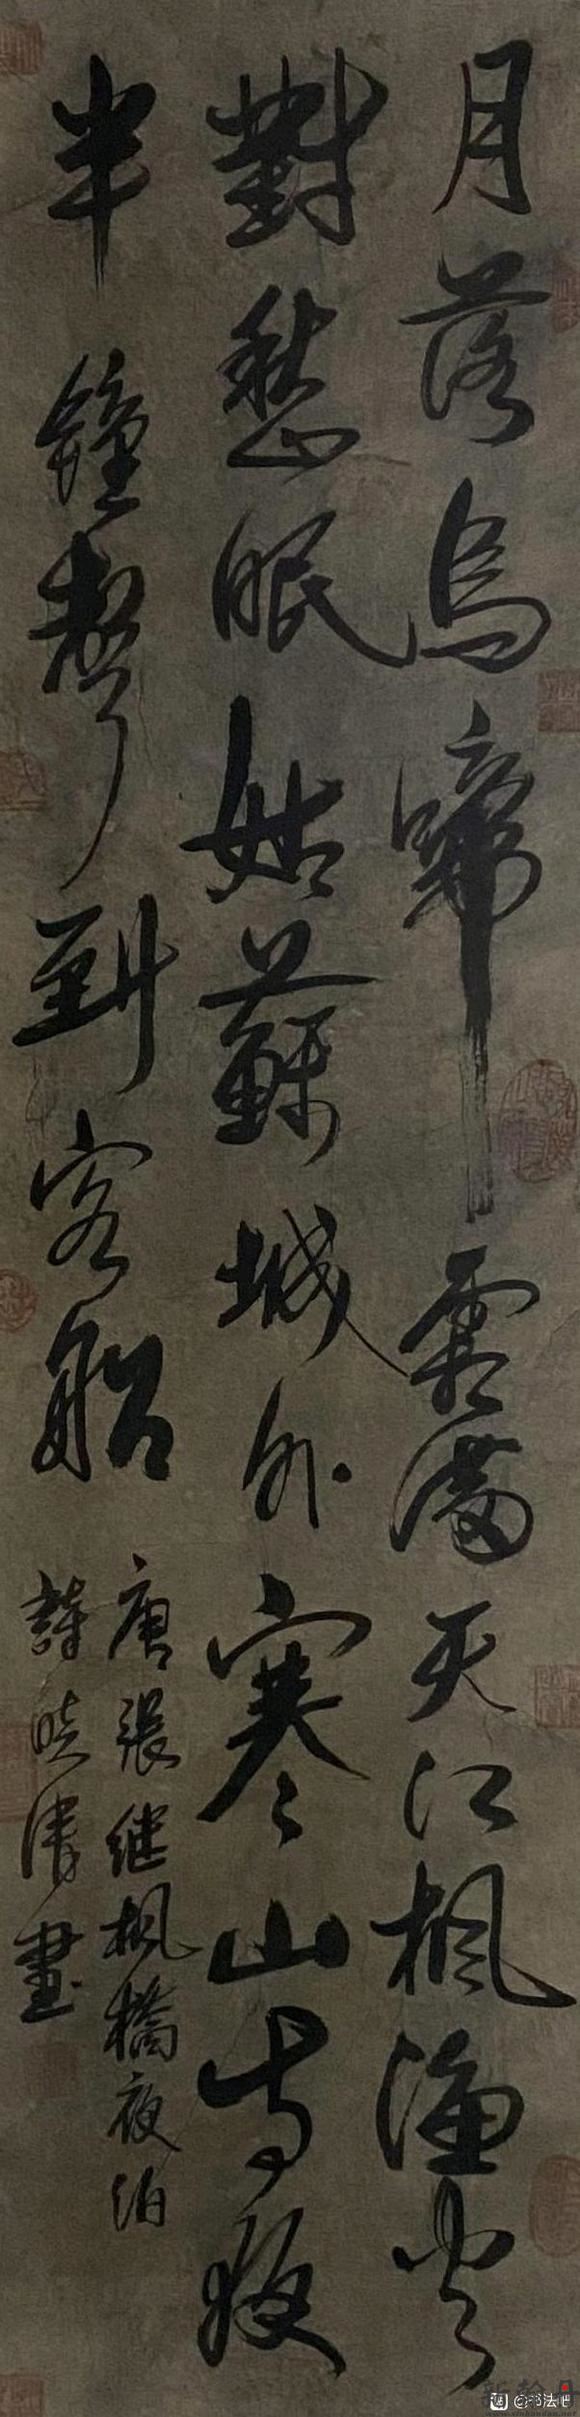 月落烏啼霜滿天江楓漁火
對愁眠姑蘇城外寒山寺夜
半鐘聲到客船
唐張继楓橋夜泊
詩曉津書
@书法吧